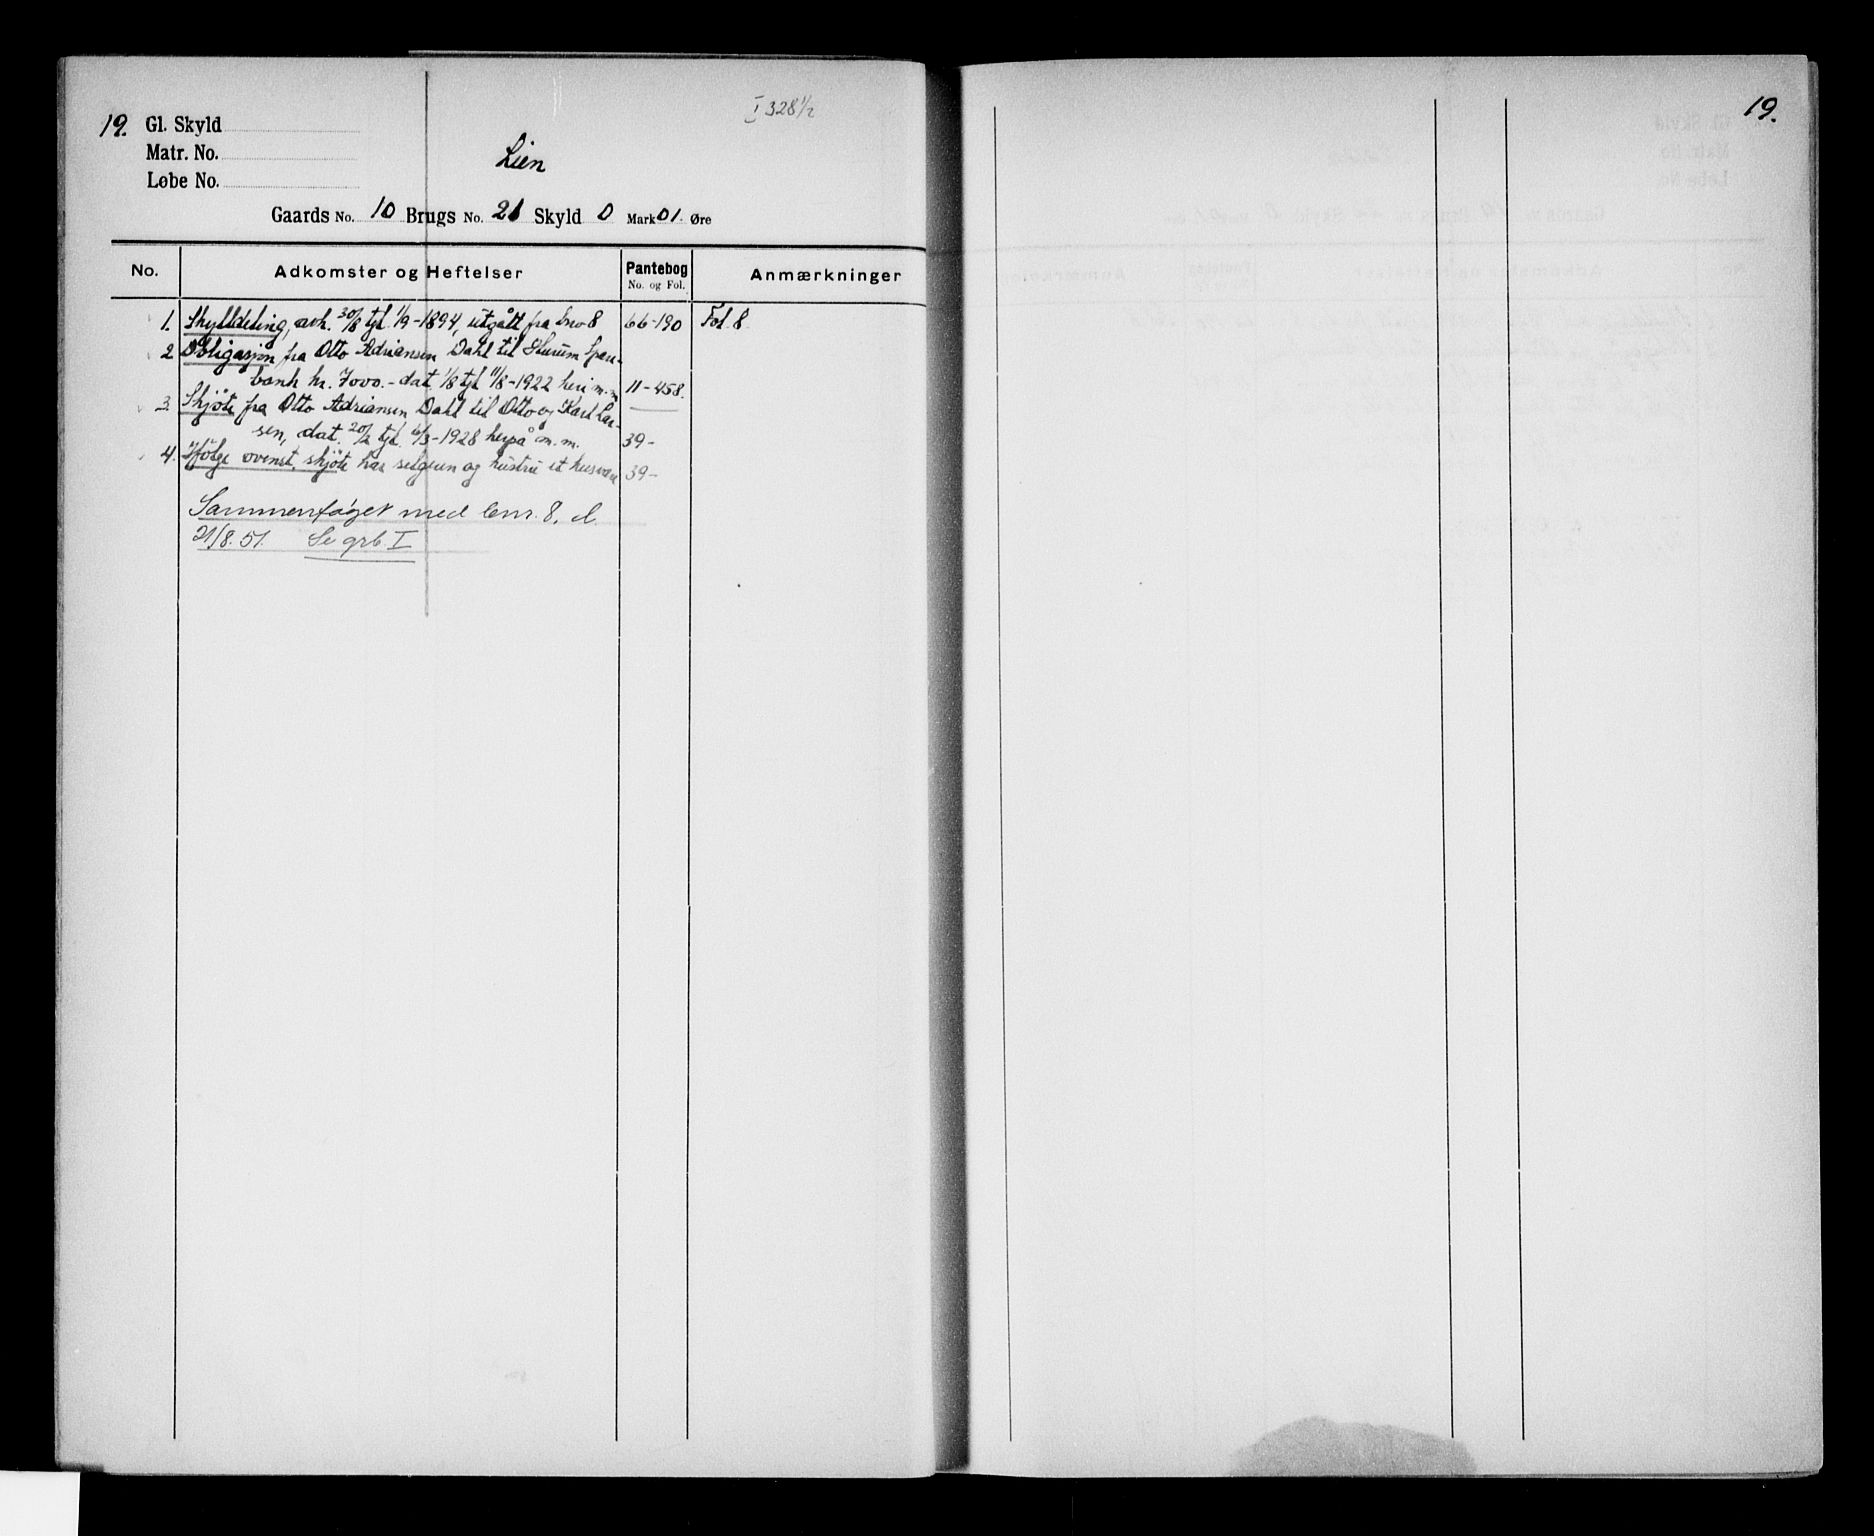 I 328 1/2
19. Gl. Skyld
Matr. No.
Løbe No.
Lien
Gaards No. 10 Brugs No. 21 Skyld 0 Mark 01. Øre
No. Adkomster og Heftelser Pantebog No. og Fol. Anmærkninger
1. Skylddeling, avh. 30/8 tgl. 1/9-1894, utgått fra bno 8 66-190 Fol. 8
2 Obligasjon fra Otto Adriansen Dahl til Hurum Spare-
bank kr. 7000.- dat. 1/8 tgl 11/8-1922 heri m.m 11-458.
3. Skjöte fra Otto Adriansen Dahl til Otto og Karl Lar-
sen, dat. 20/2 tgl. 6/3-1928 herpå m.m. 39-
4. Ifölge ovenst. skjöte har selgeren og hustru et husvære 39-
Sammenføyet med bnr. 8. d.
21/8.51. Se grb. I
19.